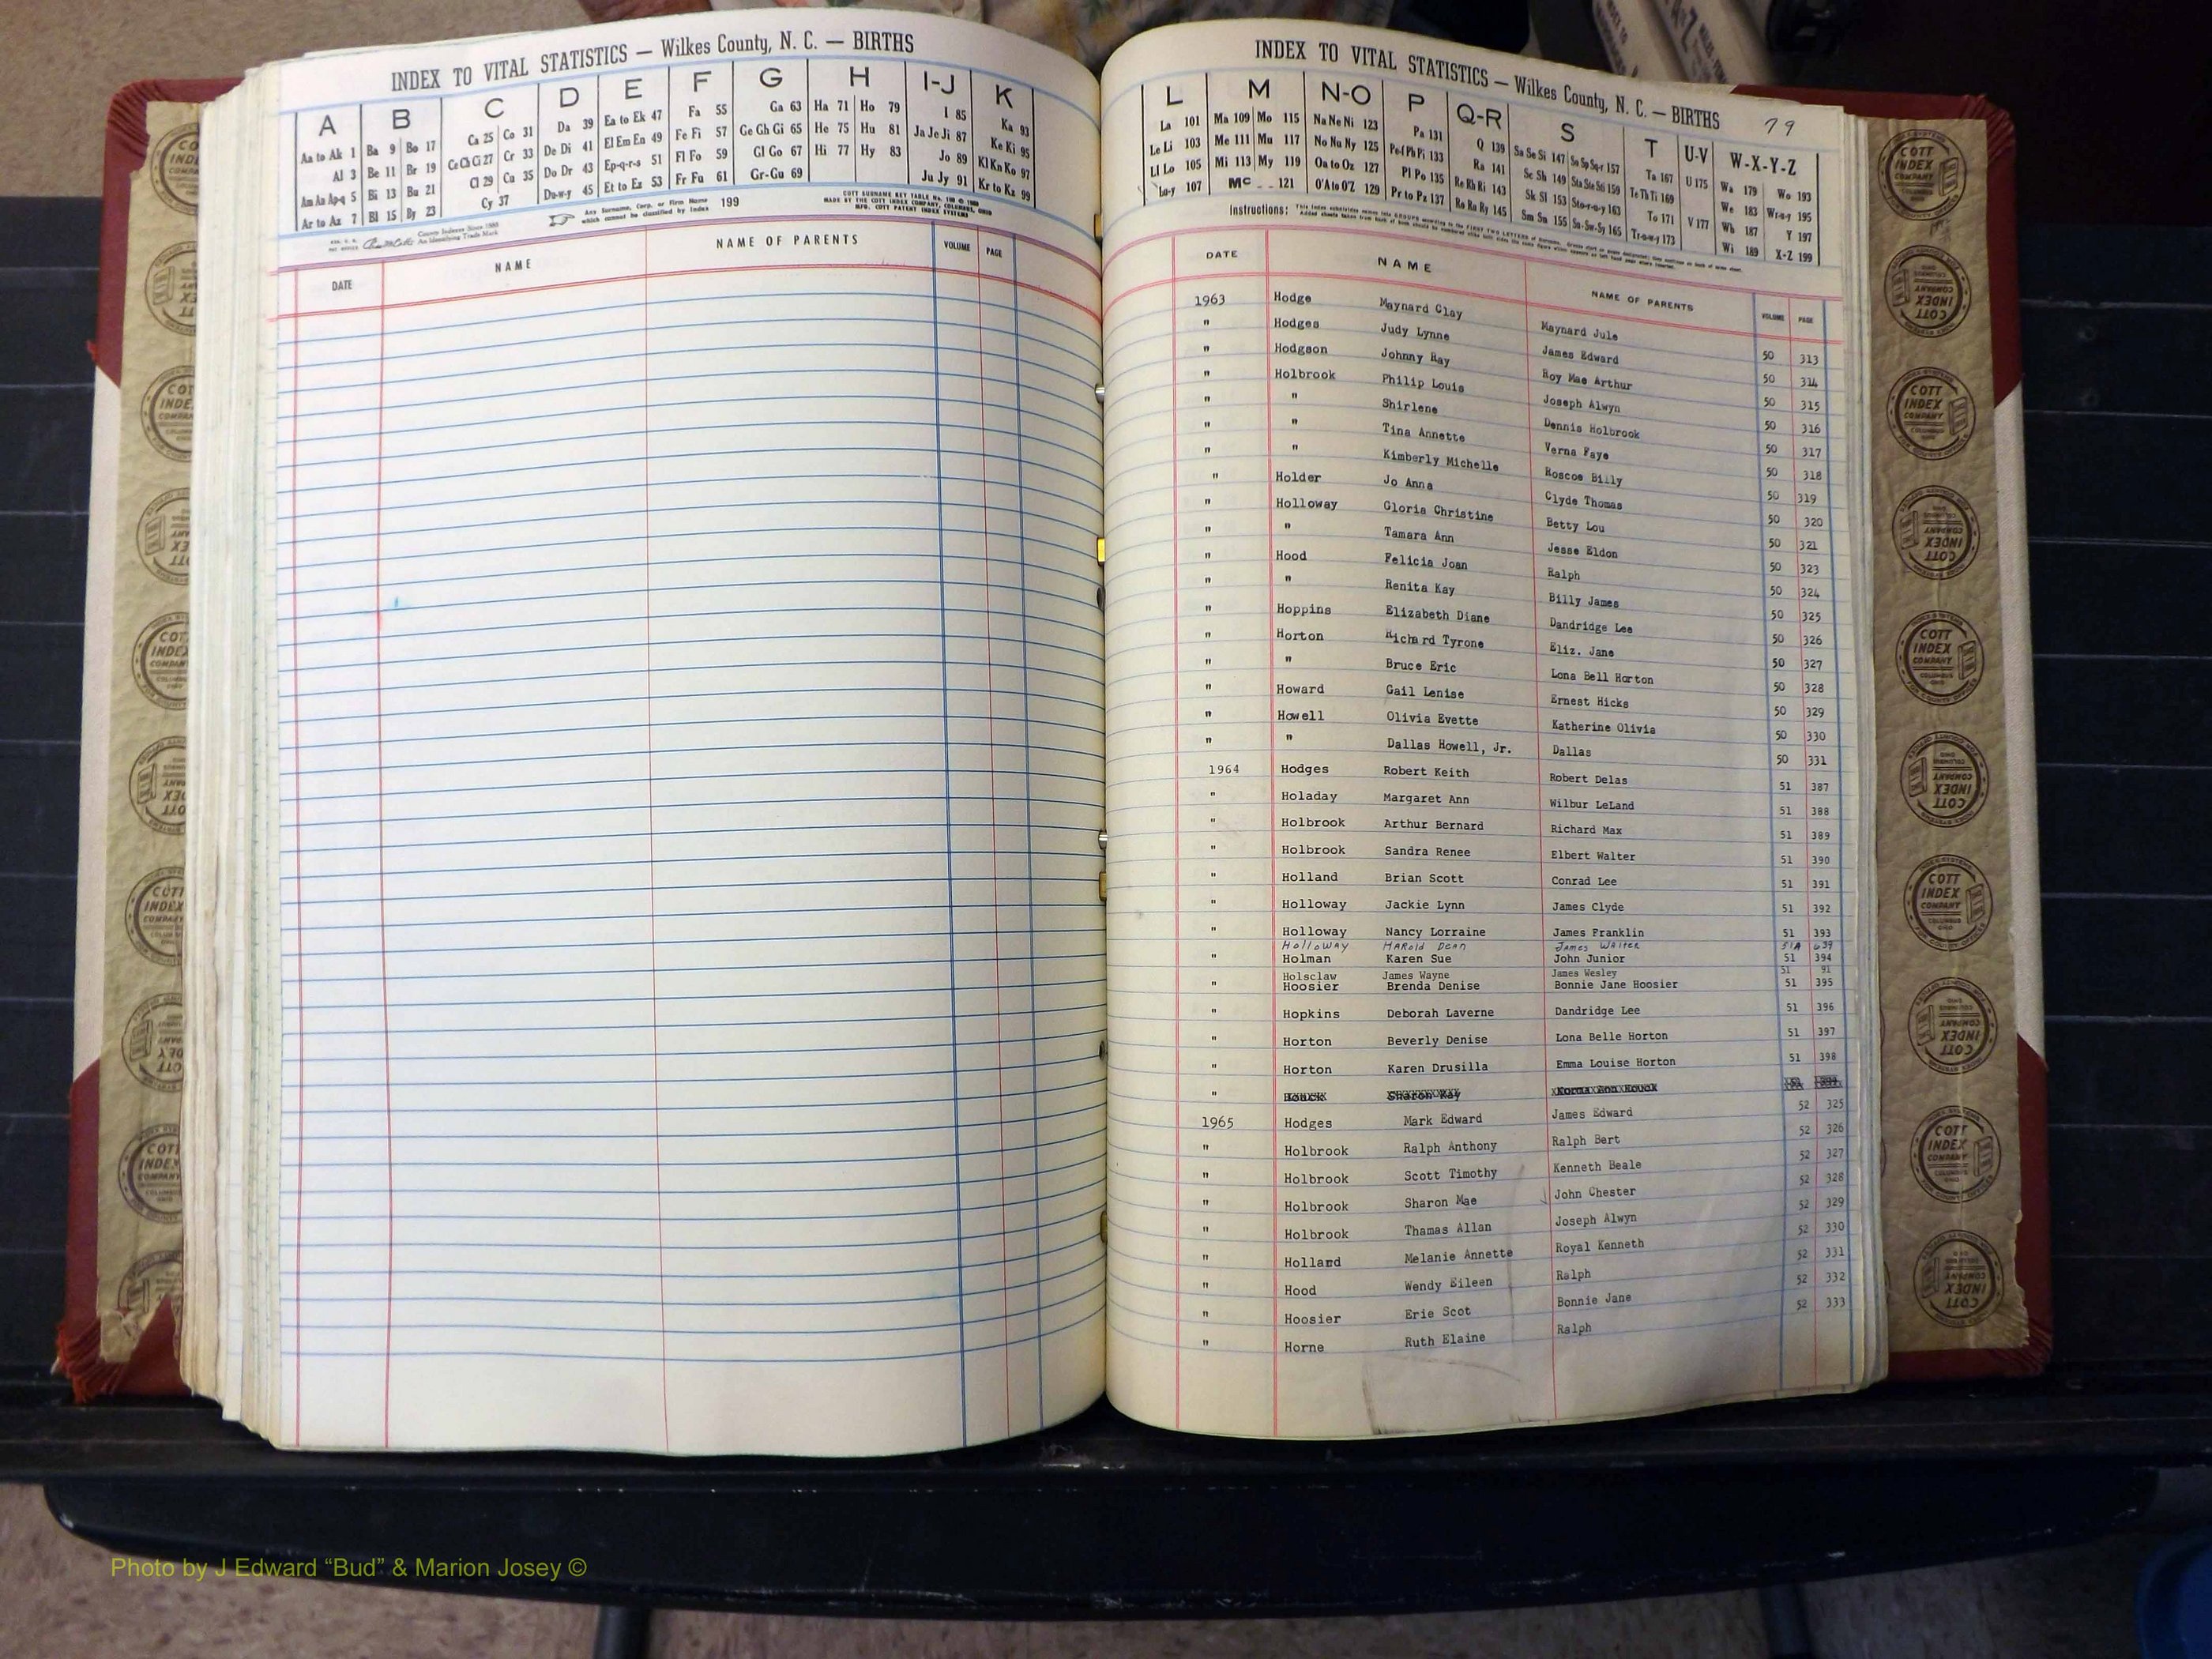 INDEX TO VITAL STATISTICS — Wilkes County, N. C. — BIRTHS
A B C D E F G H I-J K
Aa to Ak 1 Ba 9 Bo 17 Ca 25 Co 31 Da 39 Ea to Ek 47 Fa 55 Ga 63 Ha 71 Ho 79 I 85 Ka 93
Al 3 Be 11 Br 19 Ce Ch Ci 27 Cr 33 De Di 41 El Em En 49 Fe Fi 57 Ge Gh Gi 65 He 75 Hu 81 Ja Je Ji 87 Ke Ki 95
Am An Ap-q 5 Bi 13 Bu 21 Cl 29 Cu 35 Do Dr 43 Ep-q-r-s 51 Fl Fo 59 Gl Go 67 Hi 77 Hy 83 Jo 89 Kl Kn Ko 97
Ar to Az 7 Bl 15 By 23 Cy 37 Du-w-y 45 Et to Ez 53 Fr Fu 61 Gr-Gu 69 Ju Jy 91 Kr to Kz 99
County Indexes Since 1888
An Identifying Trade Mark
Any Surname, Corp. or Firm Name
which cannot be classified by Index 199
MADE BY THE COTT INDEX COMPANY, COLUMBUS, OHIO
MFG. COTT PATENT INDEX SYSTEMS
DATE NAME NAME OF PARENTS VOLUME PAGE
INDEX TO VITAL STATISTICS — Wilkes County, N. C. — BIRTHS 79
L M N-O P Q-R S T U-V W-X-Y-Z
La 101 Ma 109 Mo 115 Na Ne Ni 123 Pa 131 Q 139 Sa Se Si 147 Sn Sp Sq-r 157 Ta 167 U 175 Wa 179 Wo 193
Le Li 103 Me 111 Mu 117 No Nu Ny 125 Pe-f Ph Pi 133 Ra 141 Sc Sh 149 Sta Ste Sti 159 Te Th Ti 169 We 183 Wr-u-y 195
Ll Lo 105 Mi 113 My 119 Oa to Oz 127 Pl Po 135 Re Rh Ri 143 Sk Sl 153 Sto-r-u-y 163 To 171 V 177 Wh 187 Y 197
Lu-y 107 Mc 121 O'A to O'Z 129 Pr to Pz 137 Ro Ru Ry 145 Sm Sn 155 Su-Sw-Sy 165 Tr-u-w-y 173 Wi 189 X-Z 199
Instructions:
DATE NAME NAME OF PARENTS VOLUME PAGE
1963 Hodge Maynard Clay Maynard Jule 50 313
" Hodges Judy Lynne James Edward 50 314
" Hodgson Johnny Ray Roy Mae Arthur 50 315
" Holbrook Philip Louis Joseph Alwyn 50 316
" " Shirlene Dennis Holbrook 50 317
" " Tina Annette Verna Faye 50 318
" " Kimberly Michelle Roscoe Billy 50 319
" Holder Jo Anna Clyde Thomas 50 320
" Holloway Gloria Christine Betty Lou 50 321
" " Tamara Ann Jesse Eldon 50 323
" Hood Felicia Joan Ralph 50 324
" " Renita Kay Billy James 50 325
" Hoppins Elizabeth Diane Dandridge Lee 50 326
" Horton Richard Tyrone Eliz. Jane 50 327
" " Bruce Eric Lona Bell Horton 50 328
" Howard Gail Lenise Ernest Hicks 50 329
" Howell Olivia Evette Katherine Olivia 50 330
" " Dallas Howell, Jr. Dallas 50 331
1964 Hodges Robert Keith Robert Delas 51 387
" Holaday Margaret Ann Wilbur LeLand 51 388
" Holbrook Arthur Bernard Richard Max 51 389
" Holbrook Sandra Renee Elbert Walter 51 390
" Holland Brian Scott Conrad Lee 51 391
" Holloway Jackie Lynn James Clyde 51 392
" Holloway Nancy Lorraine James Franklin 51 393
Holloway Harold Dean James Walter 51A 639
" Holman Karen Sue John Junior 51 394
Holsclaw James Wayne James Wesley 51 91
" Hoosier Brenda Denise Bonnie Jane Hoosier 51 395
" Hopkins Deborah Laverne Dandridge Lee 51 396
" Horton Beverly Denise Lona Belle Horton 51 397
" Horton Karen Drusilla Emma Louise Horton 51 398
" Houck Sharon Kay Norma Ann Houck
1965 Hodges Mark Edward James Edward 52 325
" Holbrook Ralph Anthony Ralph Bert 52 326
" Holbrook Scott Timothy Kenneth Beale 52 327
" Holbrook Sharon Mae John Chester 52 328
" Holbrook Thamas Allan Joseph Alwyn 52 329
" Holland Melanie Annette Royal Kenneth 52 330
" Hood Wendy Eileen Ralph 52 331
" Hoosier Erie Scot Bonnie Jane 52 332
" Horne Ruth Elaine Ralph 52 333
COTT INDEX COMPANY
Photo by J Edward “Bud” & Marion Josey ©